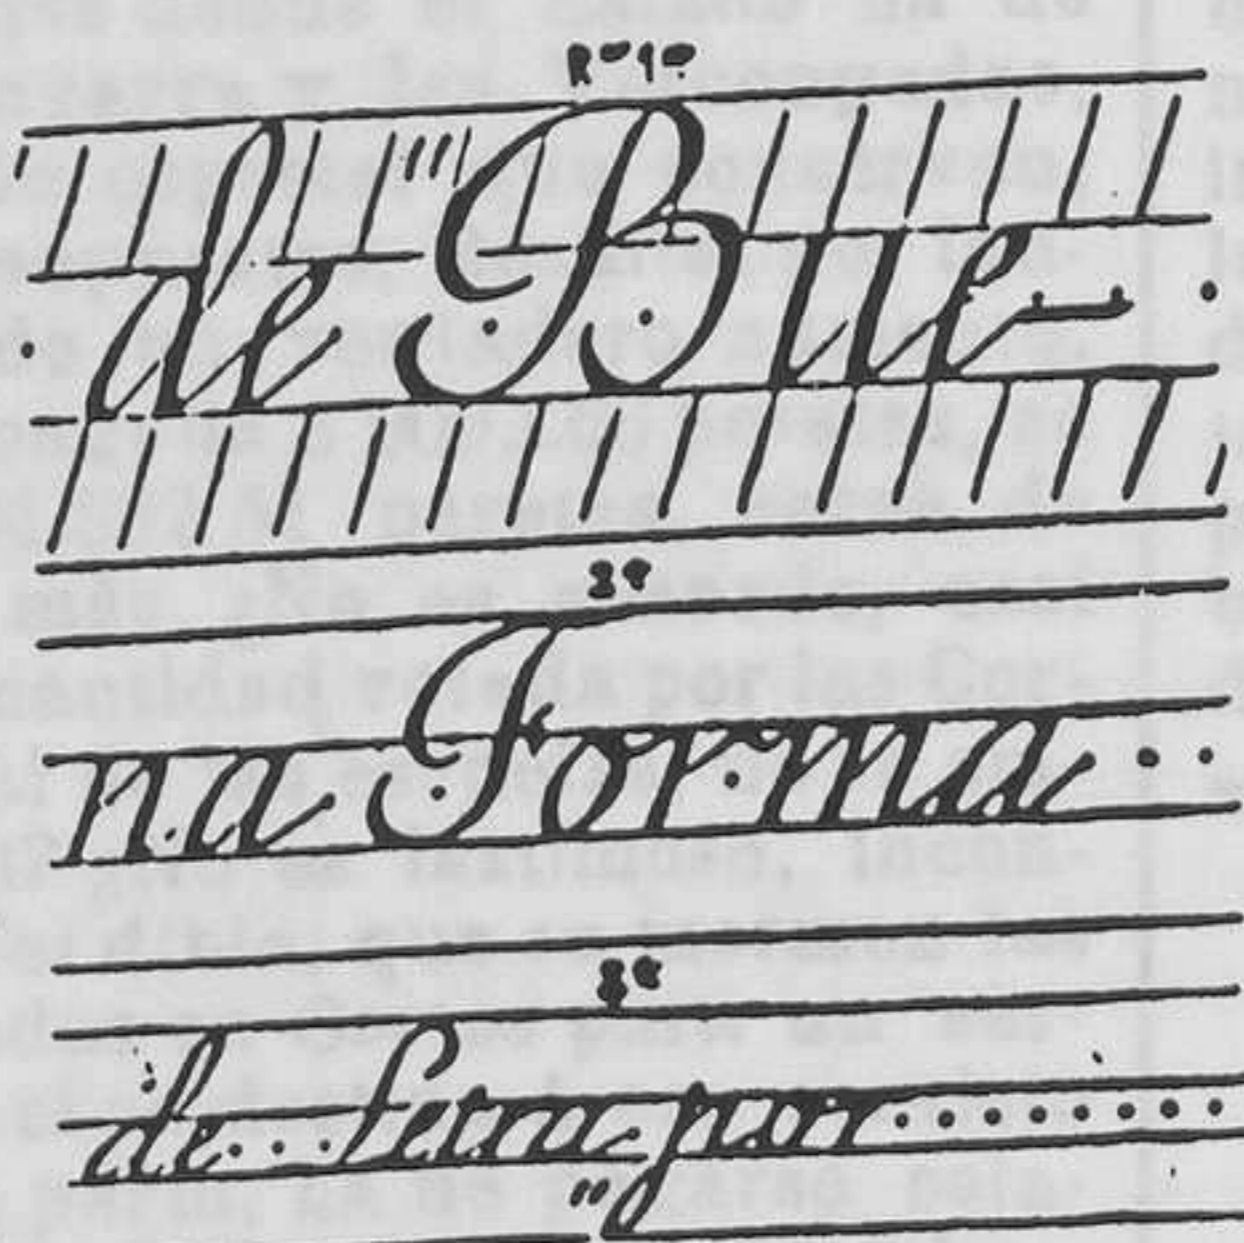 Rª 1ª
de Bue-
2ª
na Forma
3ª
de letra por